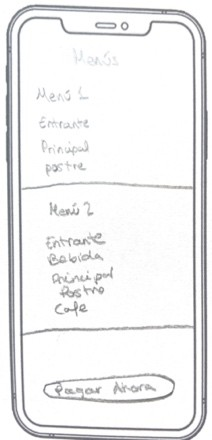 Menús
Menú 1
Entrante
Principal
postre
Menú 2
Entrante
Bebida
Principal
Postre
Cafe
Pagar Ahora